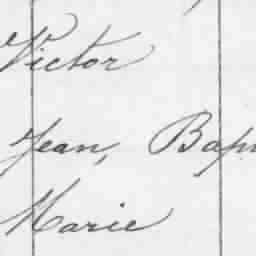 Victor
Jean, Bap
Marie